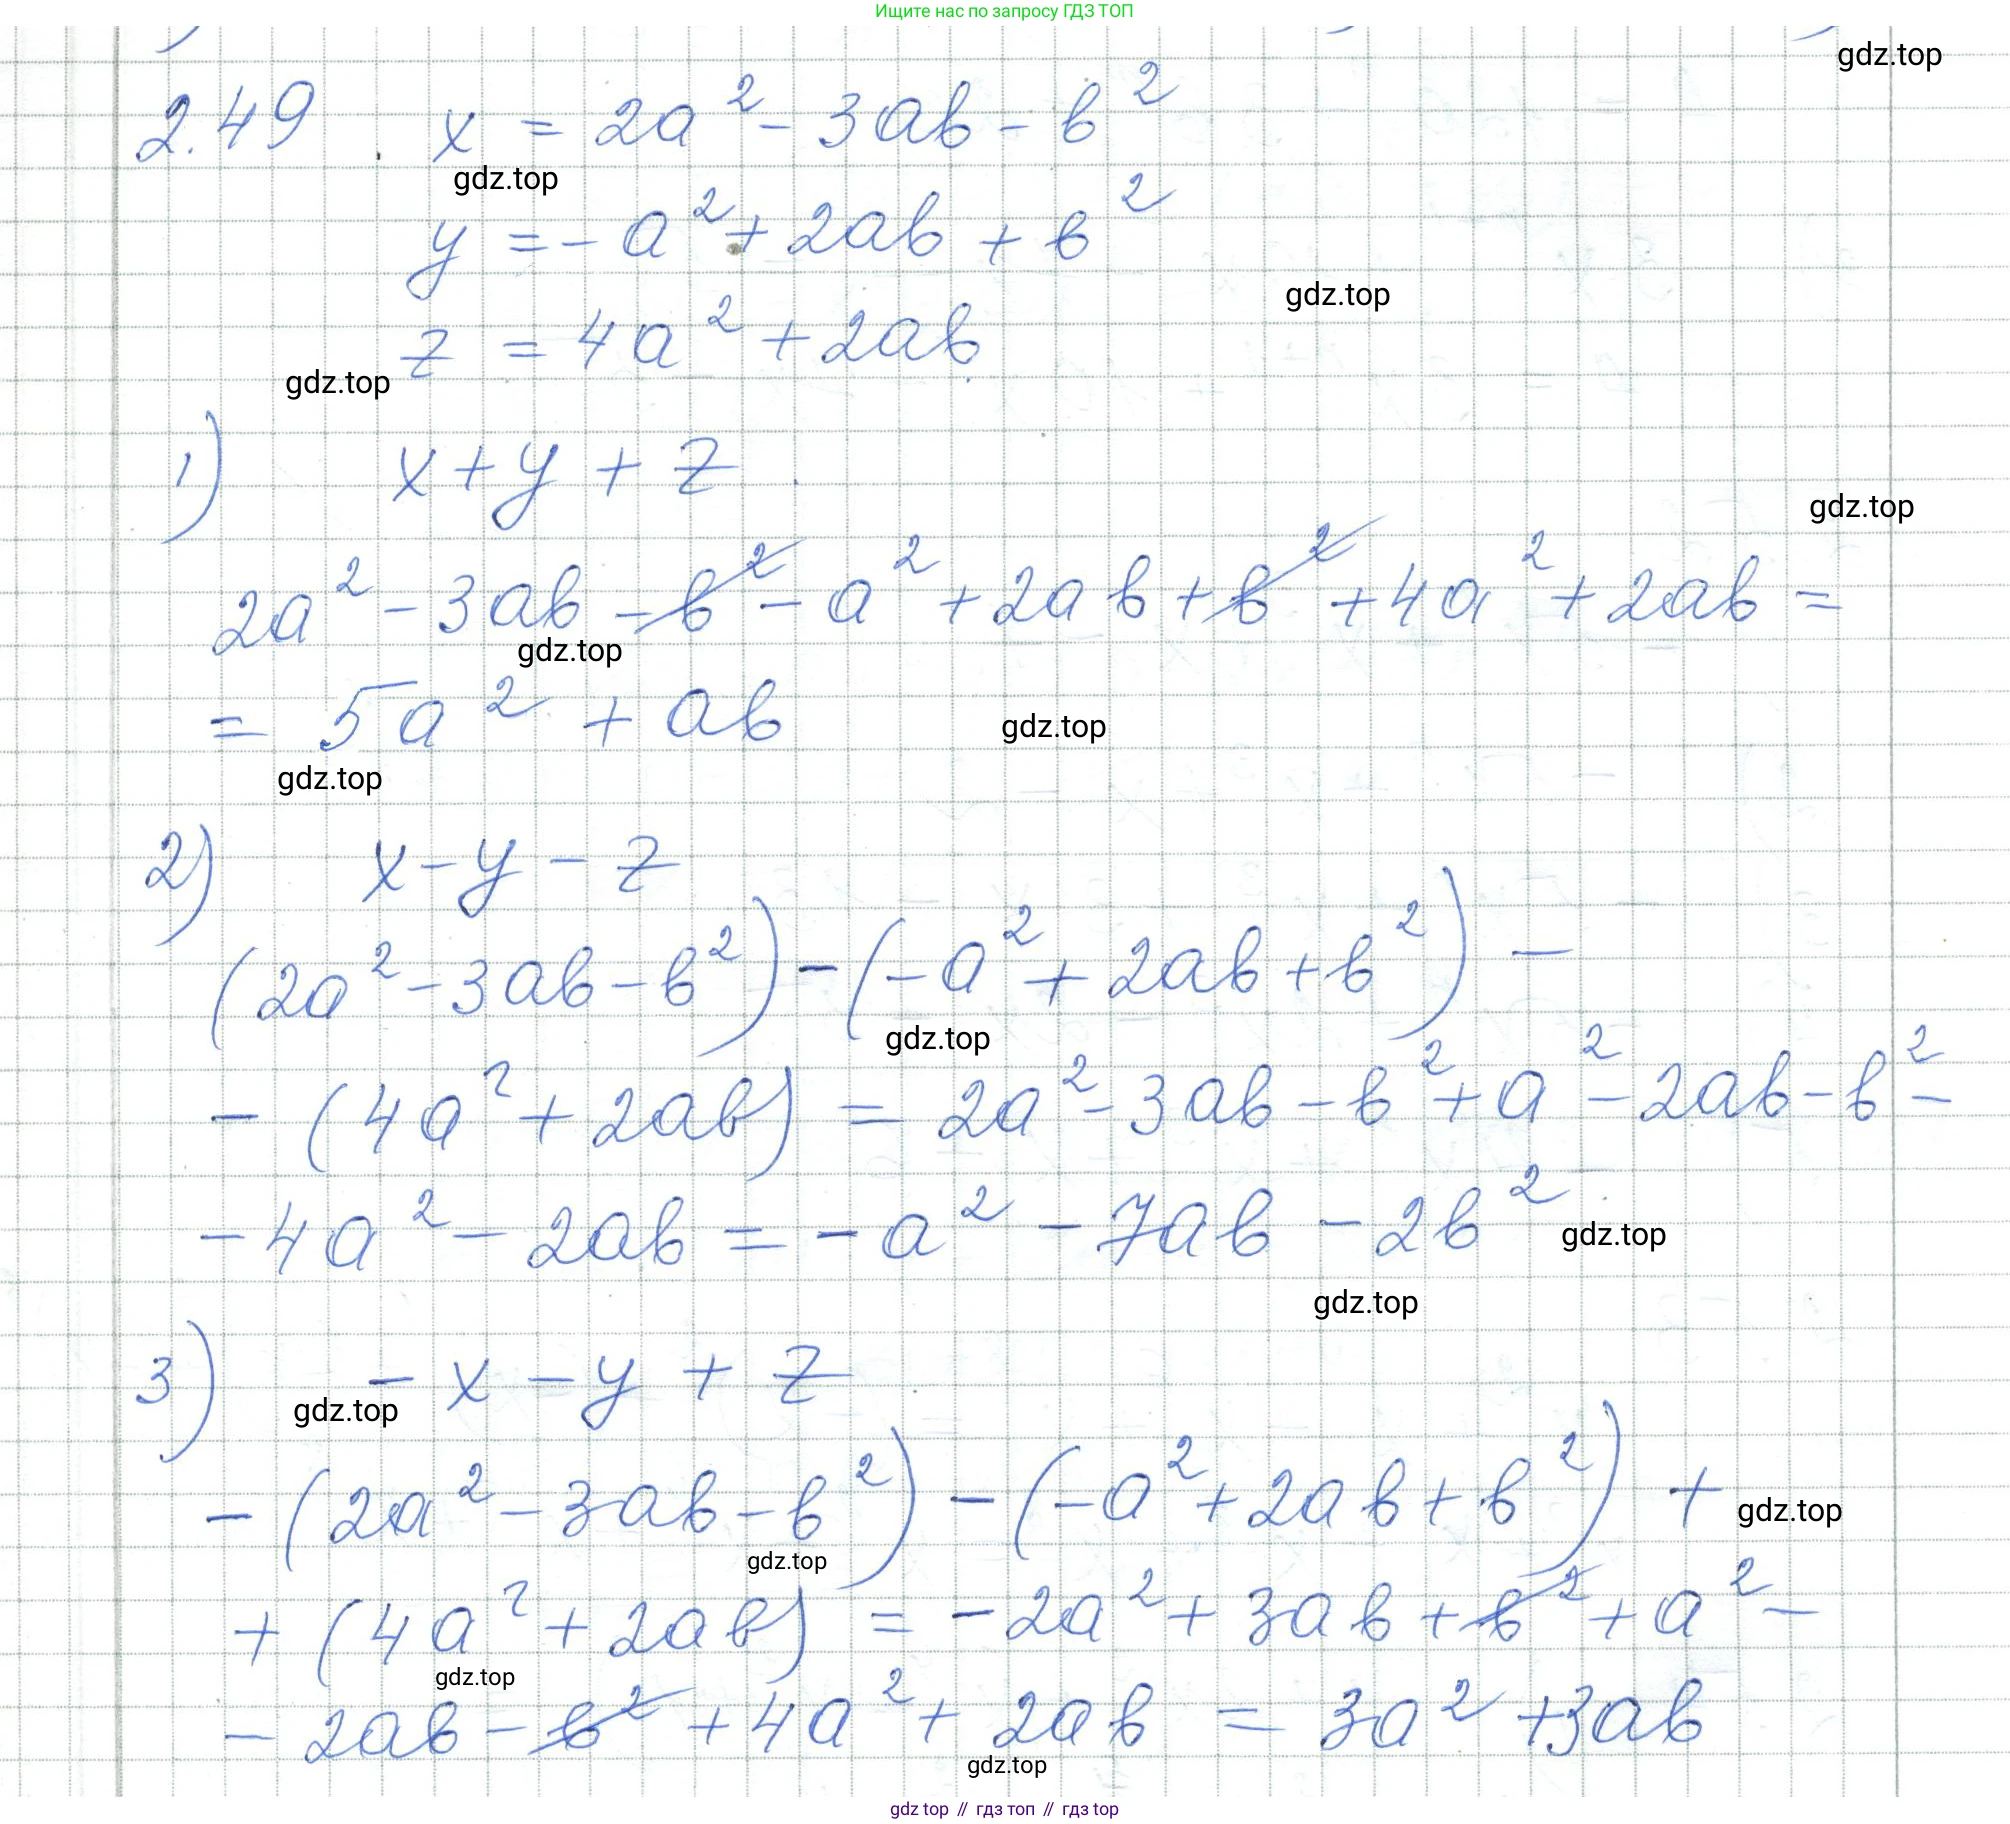 Ищите нас по запросу ГДЗ ТОП
gdz.top
2.49. x = 2a² - 3ab - b²
gdz.top
y = - a² + 2ab + b²
gdz.top
z = 4a² + 2ab
gdz.top
1) x + y + z
gdz.top
2a² - 3ab - b² - a² + 2ab + b² + 4a² + 2ab =
gdz.top
= 5a² + ab
gdz.top
gdz.top
2) x - y - z
(2a² - 3ab - b²) - (-a² + 2ab + b²) -
gdz.top
- (4a² + 2ab) = 2a² - 3ab - b² + a² - 2ab - b² -
- 4a² - 2ab = - a² - 7ab - 2b²
gdz.top
gdz.top
3) - x - y + z
gdz.top
- (2a² - 3ab - b²) - (-a² + 2ab + b²) +
gdz.top
gdz.top
+ (4a² + 2ab) = - 2a² + 3ab + b² + a² -
gdz.top
- 2ab - b² + 4a² + 2ab = 3a² + 3ab
gdz.top
gdz top // гдз топ // гдз top